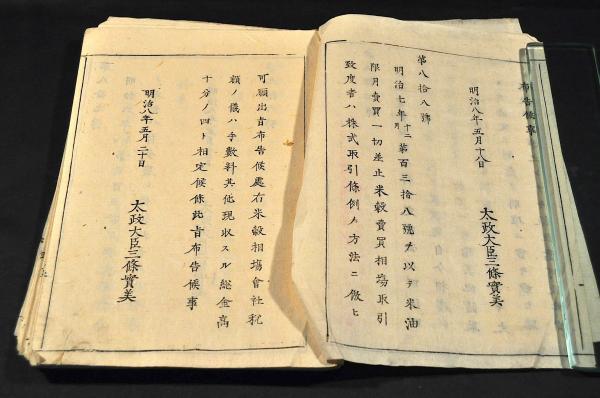 布告候事
明治八年五月十八日
太政大臣三條實美
第八拾八號
明治七年十二月第百三拾八號ヲ以テ米油
限月賣買一切差止米穀賣買相場取引
致度者ハ株式取引條例ノ方法ニ倣ヒ
可願出旨布告候處右米穀相塲會社税
額ノ儀ハ手數料其他現収スル総金高
十分ノ四ト相定候條此旨布告候事
明治八年五月二十日
太政大臣三條實美